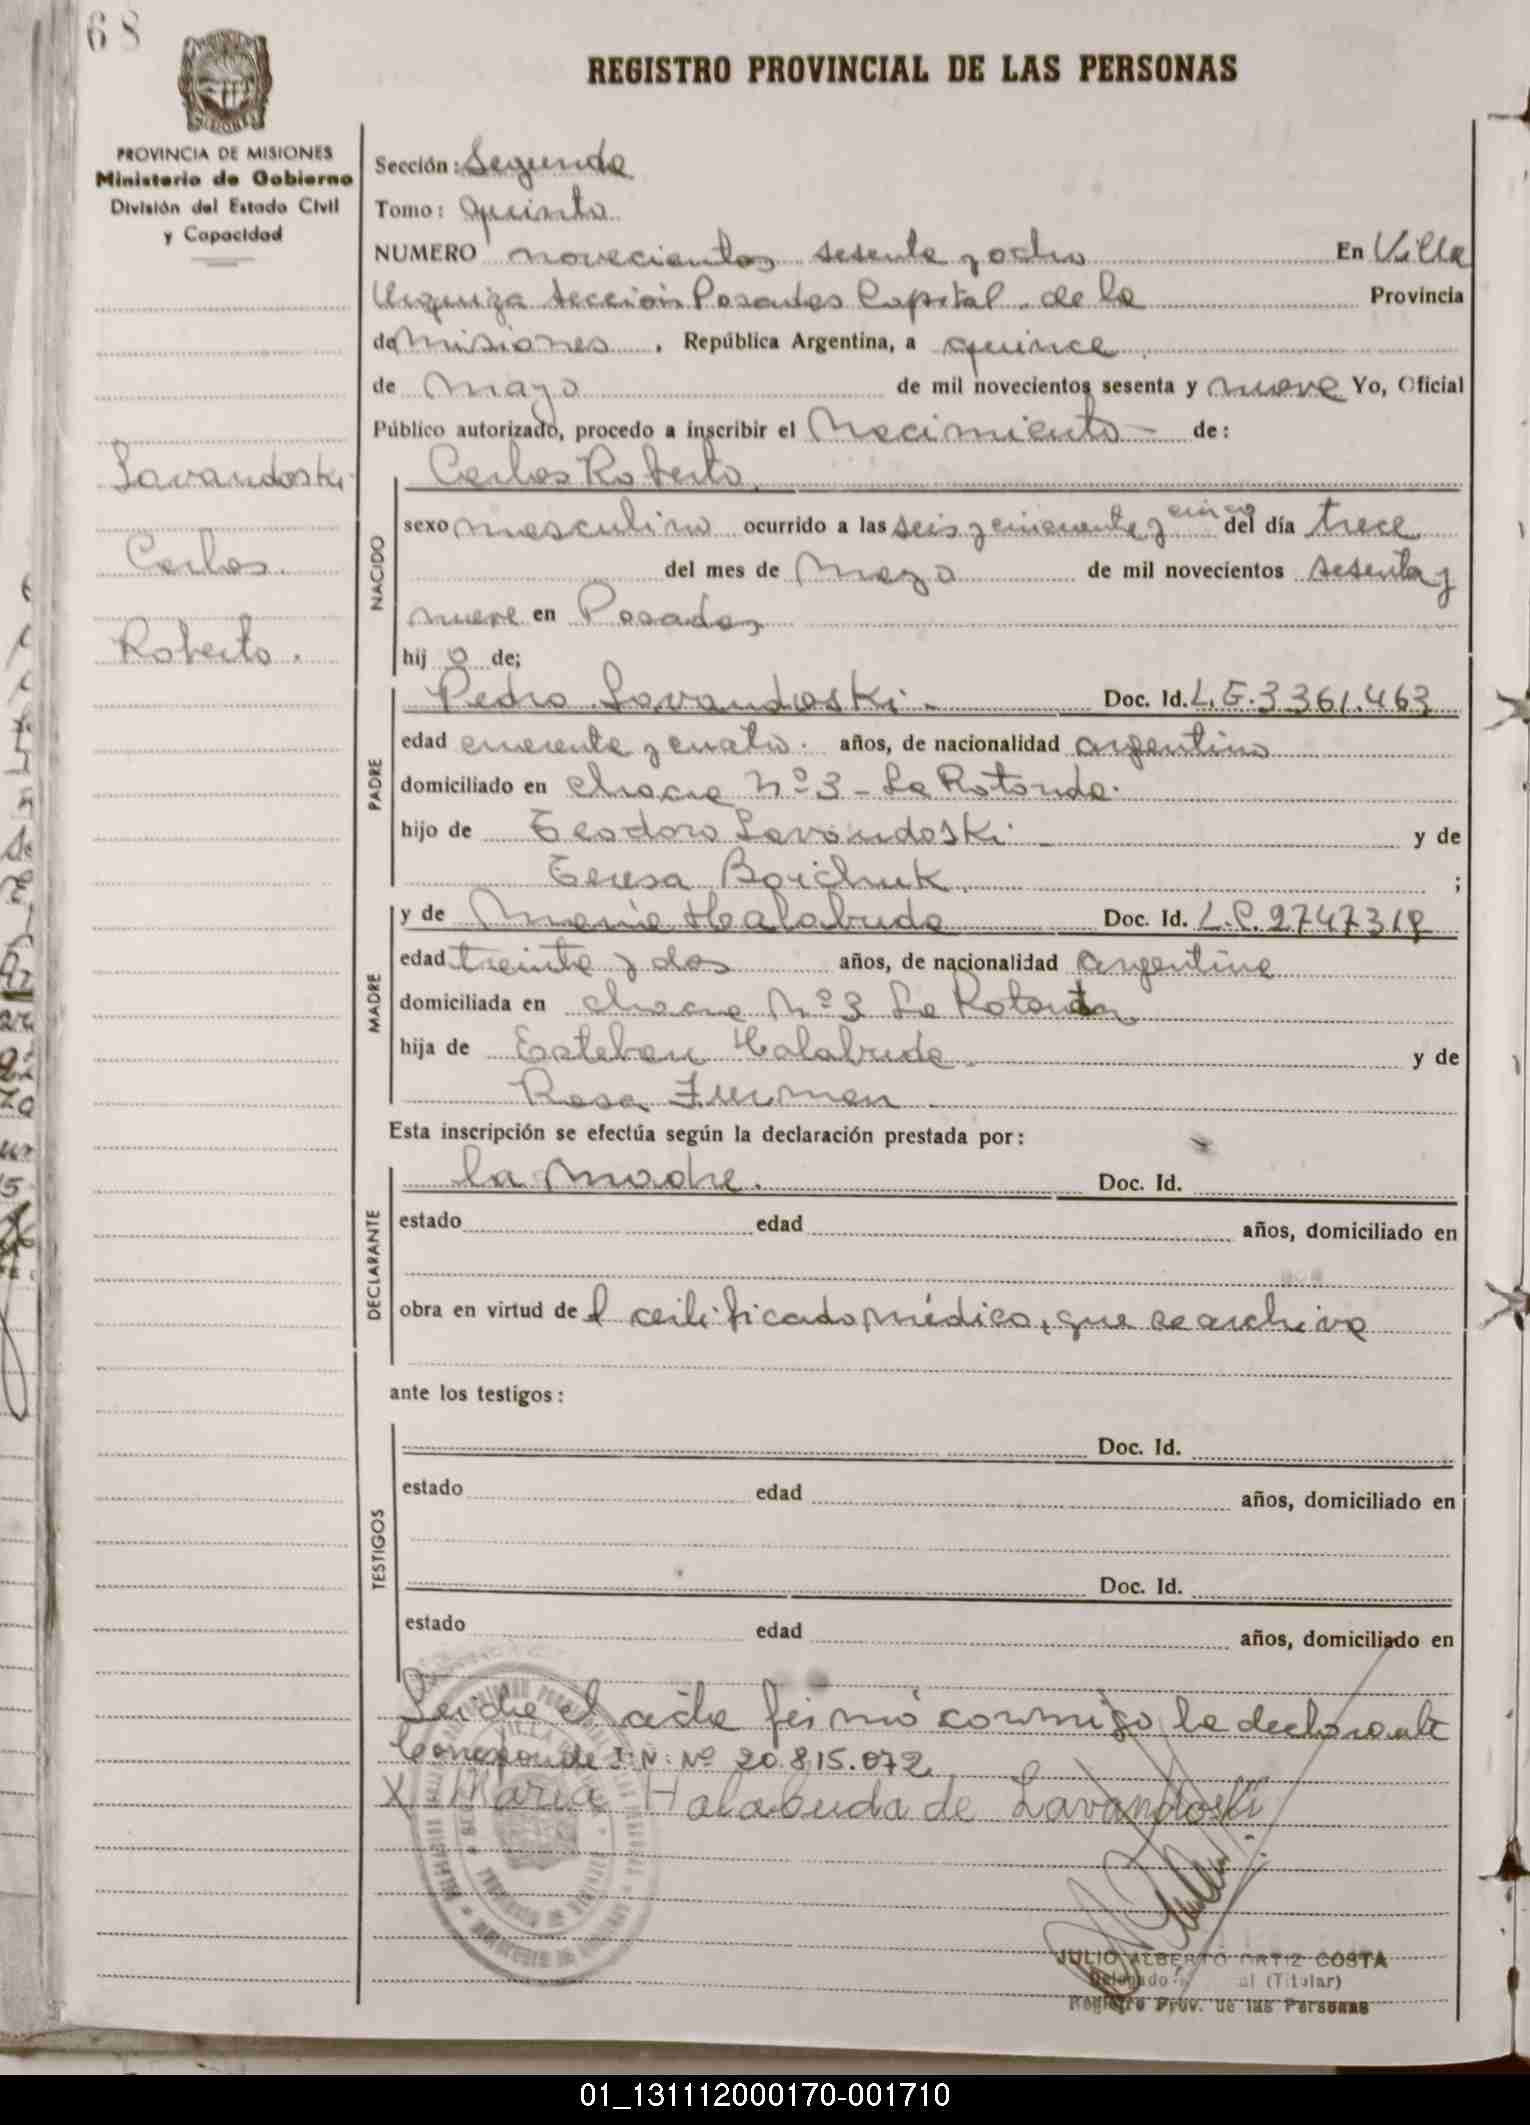 68
REGISTRO PROVINCIAL DE LAS PERSONAS
PROVINCIA DE MISIONES
Ministerio de Gobierno
División del Estado Civil
y Capacidad
Lavandoski
Carlos
Roberto.
Sección: Segunda
Tomo: Quinto
NUMERO novecientos sesenta y ocho En Villa
Urquiza Sección Posadas Capital de la Provincia
de Misiones, República Argentina, a quince
de Mayo de mil novecientos sesenta y nueve Yo, Oficial
Público autorizado, procedo a inscribir el Nacimiento de:
NACIDO
Carlos Roberto
sexo masculino ocurrido a las seis y cincuenta y cinco del día trece
del mes de Mayo de mil novecientos sesenta y
nueve en Posadas
hij o de;
PADRE
Pedro Lavandoski.- Doc. Id. L.E.3361.463
edad cuarenta y cuatro. años, de nacionalidad argentino
domiciliado en chacra Nº3 - La Rotonda.
hijo de Teodoro Lavandoski y de
Teresa Boichuk ;
MADRE
y de María Halabuda Doc. Id. L.C.2747318
edad treinta y dos años, de nacionalidad argentina
domiciliada en chacra Nº3 La Rotonda
hija de Esteban Halabuda y de
Rosa Furman
Esta inscripción se efectúa según la declaración prestada por:
DECLARANTE
la madre. Doc. Id.
estado edad años, domiciliado en
obra en virtud de l certificado médico, que se archiva
ante los testigos:
TESTIGOS
Doc. Id.
estado edad años, domiciliado en
Doc. Id.
estado edad años, domiciliado en
Leida el acta firmó conmigo la declarante
Corresponde I.N: Nº 20.815.072
X María Halabuda de Lavandoski
JULIO ALBERTO ORTIZ COSTA
Delegado al (Titular)
Registro Prov. de las Personas
01_131112000170-001710